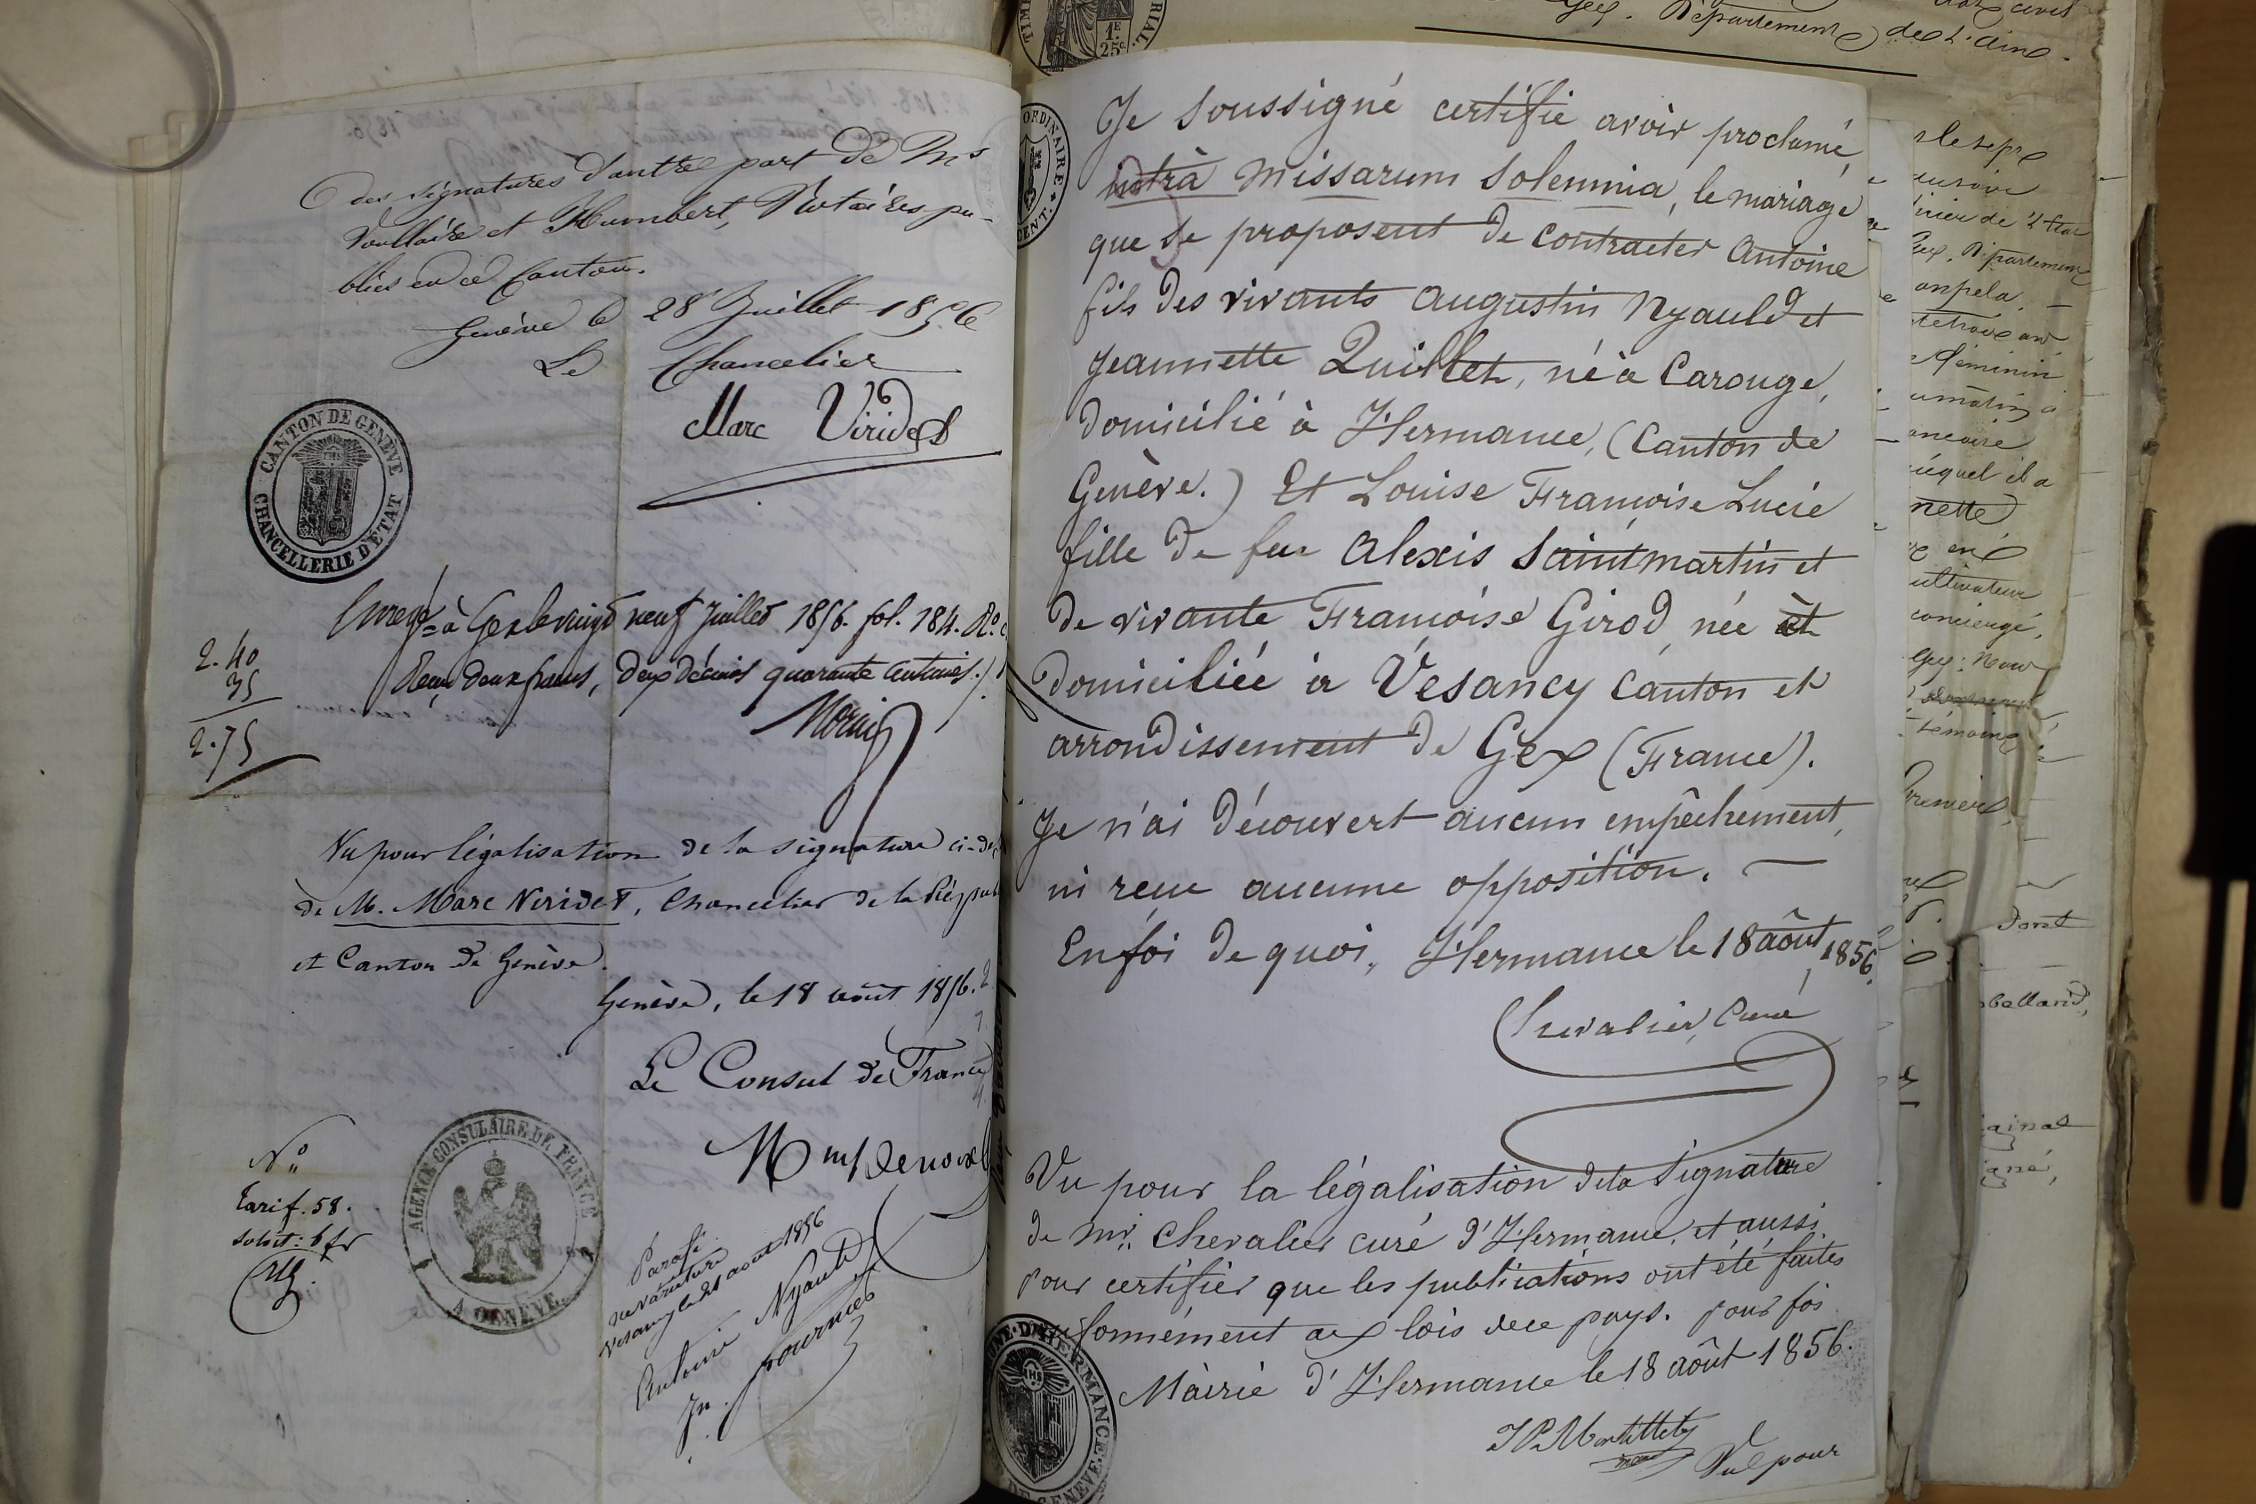 des signatures d'autre part de Mrs
Vuillaire et Humbert, Notaires pu-
blics en ce Canton.
Genève le 28 Juillet 1856
Le Chancelier
Marc Viridet
CANTON DE GENÈVE
CHANCELLERIE D'ÉTAT
Enregé à Gex le vingt neuf Juillet 1856. fol. 184. Ro.
Reçu deux francs, deux décimes quarante centimes.
2.40
35
2.75
Vu pour légalisation de la signature ci-des
de M. Marc Viridet, Chancelier de la Répub
et Canton de Genève.
Genève, le 18 août 1856.
Le Consul de France
No
Tarif. 58.
soit: 6 fr
AGENCE CONSULAIRE DE FRANCE
A GENÈVE
Parafé
ne varietur
Vesancy le 21 août 1856
Antoine Nyauld
Jn. Fournier
TIMB
RIAL.
1F
25c
ORDINAIRE
CENT.
Je soussigné certifie avoir proclamé,
intrà missarum solemnia, le mariage
que se proposent de contracter Antoine
fils des vivants Augustin Nyauld et
Jeannette Quillet, né à Carouge,
domicilié à Hermance, (Canton de
Genève.) Et Louise Françoise Lucie
fille de feu Alexis Saintmartin et
de vivante Françoise Girod, née et
domiciliée à Vésancy canton et
arrondissement de Gex (France).
Je n'ai découvert aucun empêchement,
ni reçu aucune opposition. —
En foi de quoi, Hermance le 18 août 1856.
Chevalier, Curé
Vu pour la légalisation de la signature
de Mr. Chevalier curé d'Hermance, et aussi
pour certifier que les publications ont été faites
conformément aux lois de ce pays. pour foi
Mairie d'Hermance le 18 août 1856.
JP Mortillet
maire
Vu pour
D'HERMANCE
DE GENÈVE
Gex. Département de l'Ain.
Gex, Département
féminin
uéquel il a
nette
cultivateur
concierge,
témoins
Premier
dont